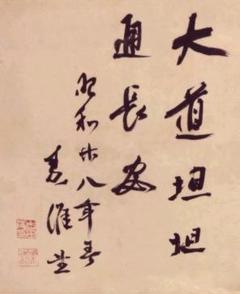 大道坦坦
通長安
昭和廿八年春